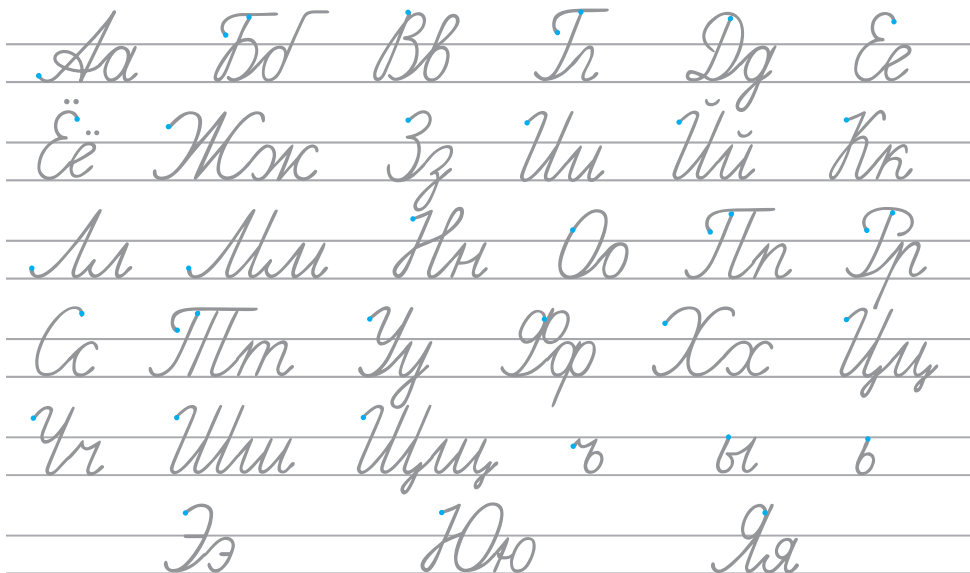 Аа Бб Вв Гг Дд Ее
Ёё Жж Зз Ии Йй Кк
Лл Мм Нн Оо Пп Рр
Сс Тт Уу Фф Хх Цц
Чч Шш Щщ ъ ы ь
Ээ Юю Яя